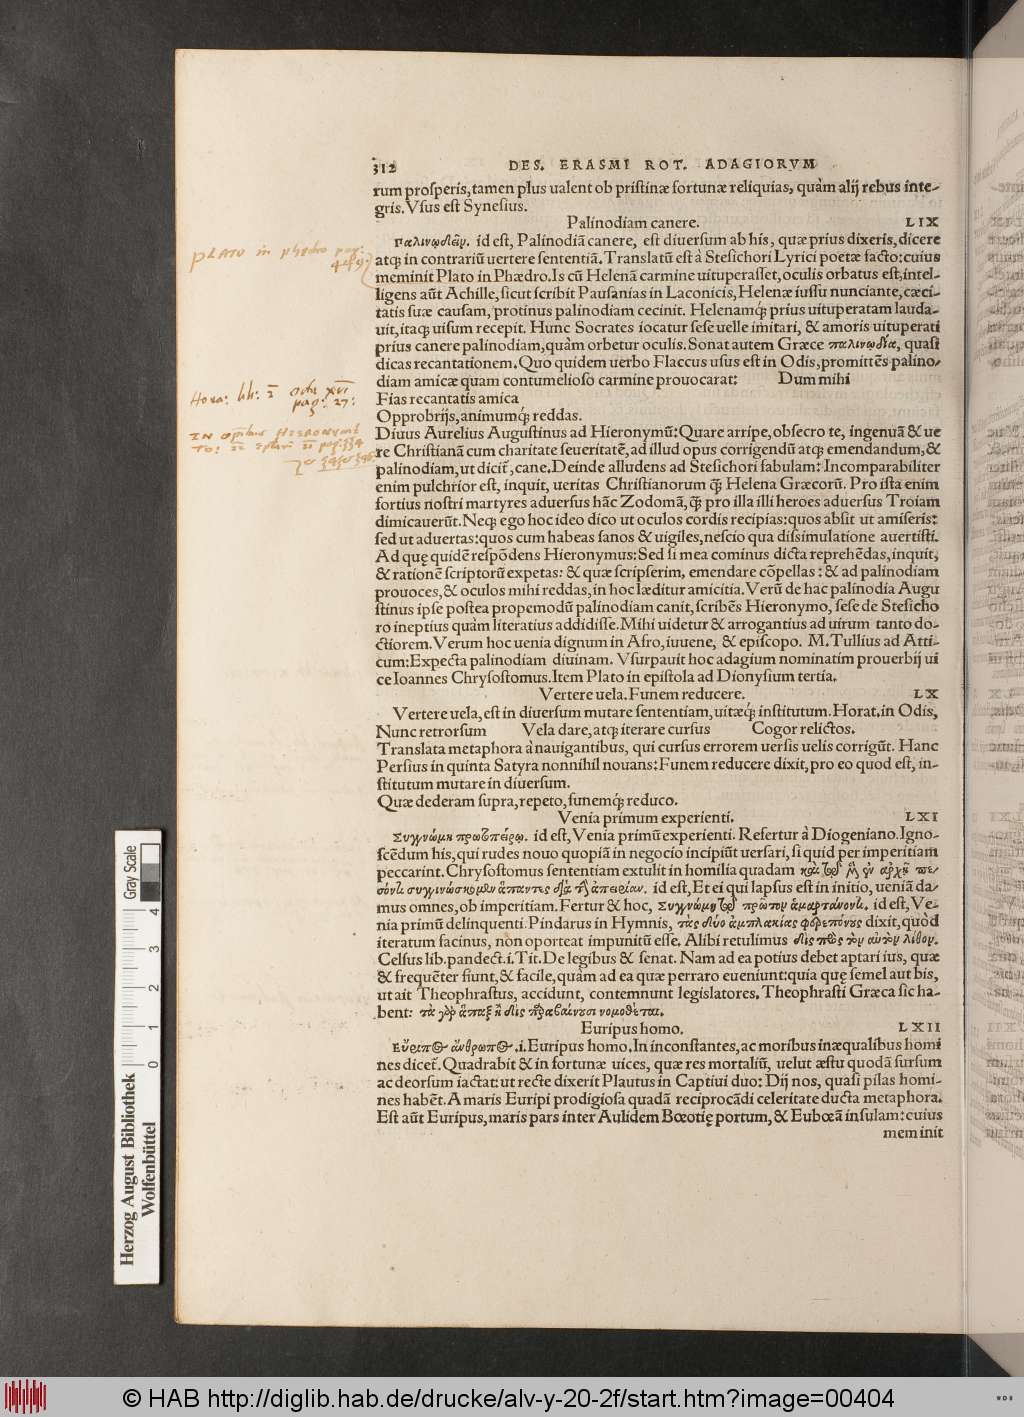 312 DES. ERASMI ROT. ADAGIORVM
rum prosperis, tamen plus ualent ob pristinæ fortunæ reliquias, quàm alij rebus inte-
gris. Vsus est Synesius.
Palinodiam canere. LIX
Παλινῳδεῖν. id est, Palinodiã canere, est diuersum ab his, quæ prius dixeris, dicere
atq; in contrariũ uertere sententiã. Translatũ est à Stesichori Lyrici poetæ facto: cuius
meminit Plato in Phædro. Is cũ Helenã carmine uituperasset, oculis orbatus est, intel-
ligens aũt Achille, sicut scribit Pausanias in Laconicis, Helenæ iussu nunciante, cæci-
tatis suæ causam, protinus palinodiam cecinit. Helenamq́; prius uituperatam lauda-
uit, itaq; uisum recepit. Hunc Socrates iocatur sese uelle imitari, & amoris uituperati
prius canere palinodiam, quàm orbetur oculis. Sonat autem Græce παλινῳδία, quasi
dicas recantationem. Quo quidem uerbo Flaccus usus est in Odis, promittẽs palino-
diam amicæ quam contumelioso carmine prouocarat: Dum mihi
Fias recantatis amica
Opprobrijs, animumq́; reddas.
Diuus Aurelius Augustinus ad Hieronymũ: Quare arripe, obsecro te, ingenuã & ue
re Christianã cum charitate seueritatẽ, ad illud opus corrigendũ atq; emendandum, &
palinodiam, ut dicit̃, cane. Deinde alludens ad Stesichori fabulam: Incomparabiliter
enim pulchrior est, inquit, ueritas Christianorum q̃; Helena Græcorũ. Pro ista enim
fortius nostri martyres aduersus hãc Zodomã, q̃; pro illa illi heroes aduersus Troiam
dimicauerũt. Neq; ego hoc ideo dico ut oculos cordis recipias: quos absit ut amiseris:
sed ut aduertas: quos cum habeas sanos & uigiles, nescio qua dissimulatione auertisti.
Ad quę quidẽ respõdens Hieronymus: Sed si mea cominus dicta reprehẽdas, inquit,
& rationẽ scriptorũ expetas: & quæ scripserim, emendare cõpellas: & ad palinodiam
prouoces, & oculos mihi reddas, in hoc læditur amicitia. Verũ de hac palinodia Augu
stinus ipse postea propemodũ palinodiam canit, scribẽs Hieronymo, sese de Stesicho
ro ineptius quàm literatius addidisse. Mihi uidetur & arrogantius ad uirum tanto do-
ctiorem. Verum hoc uenia dignum in Afro, iuuene, & episcopo. M. Tullius ad Atti-
cum: Expecta palinodiam diuinam. Vsurpauit hoc adagium nominatim prouerbij ui
ce Ioannes Chrysostomus. Item Plato in epistola ad Dionysium tertia.
Vertere uela. Funem reducere. LX
Vertere uela, est in diuersum mutare sententiam, uitæq́; institutum. Horat. in Odis,
Nunc retrorsum Vela dare, atq; iterare cursus Cogor relictos.
Translata metaphora à nauigantibus, qui cursus errorem uersis uelis corrigũt. Hanc
Persius in quinta Satyra nonnihil nouans: Funem reducere dixit, pro eo quod est, in-
stitutum mutare in diuersum.
Quæ dederam supra, repeto, funemq́; reduco.
Venia primum experienti. LXI
Συγγνώμη πρωτοπείρῳ. id est, Venia primũ experienti. Refertur à Diogeniano. Igno-
scẽdum his, qui rudes nouo quopiã in negocio incipiũt uersari, si quid per imperitiam
peccarint. Chrysostomus sententiam extulit in homilia quadam
συγγινώσκομεν ἅπαντες διὰ τὴν ἀπειρίαν. id est, Et ei qui lapsus est in initio, ueniã da-
mus omnes, ob imperitiam. Fertur & hoc, Συγγνώμη τῷ πρῶτον ἁμαρτάνοντι. id est, Ve-
nia primũ delinquenti. Pindarus in Hymnis, τὰς δύο ἀμπλακίας φερεπόνους dixit, quòd
iteratum facinus, non oporteat impunitũ esse. Alibi retulimus δὶς πρὸς τὸν αὐτὸν λίθον.
Celsus lib. pandect. i. Tit. De legibus & senat. Nam ad ea potius debet aptari ius, quæ
& frequẽter fiunt, & facile, quàm ad ea quæ perraro eueniunt: quia quę semel aut bis,
ut ait Theophrastus, accidunt, contemnunt legislatores. Theophrasti Græca sic ha-
bent: τὰ γὰρ ἅπαξ ἢ δὶς παραβαίνουσι νομοθέται.
Euripus homo. LXII
Εὔριπος ἄνθρωπος .i. Euripus homo. In inconstantes, ac moribus inæqualibus homi
nes dicet̃. Quadrabit & in fortunæ uices, quæ res mortaliũ, uelut æstu quodã sursum
ac deorsum iactat: ut recte dixerit Plautus in Captiui duo: Dij nos, quasi pilas homi-
nes habẽt. A maris Euripi prodigiosa quadã reciprocãdi celeritate ducta metaphora.
Est aũt Euripus, maris pars inter Aulidem Bœotię portum, & Eubœã insulam: cuius
meminit
PLATO in phędro pag:
449:
Hora: lib: 2 oda XVI
pag: 27:
IN HIERONYMI
TO:
Gray Scale
0 1 2 3 4
Herzog August Bibliothek
Wolfenbüttel
© HAB http://diglib.hab.de/drucke/alv-y-20-2f/start.htm?image=00404
WDB